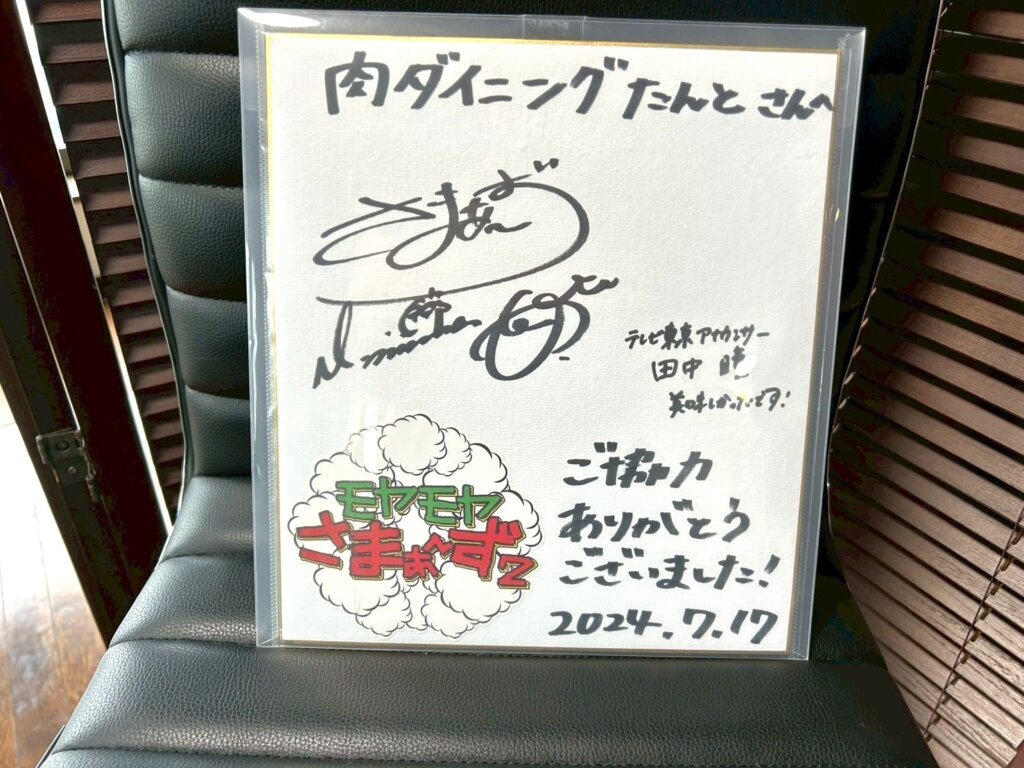 肉ダイニング たんと さんへ
さまぁ~ず
テレビ東京アナウンサー
田中 瞳
美味しかったです!
モヤモヤ
さまぁ~ず2
ご協力
ありがとう
ございました!
2024.7.17